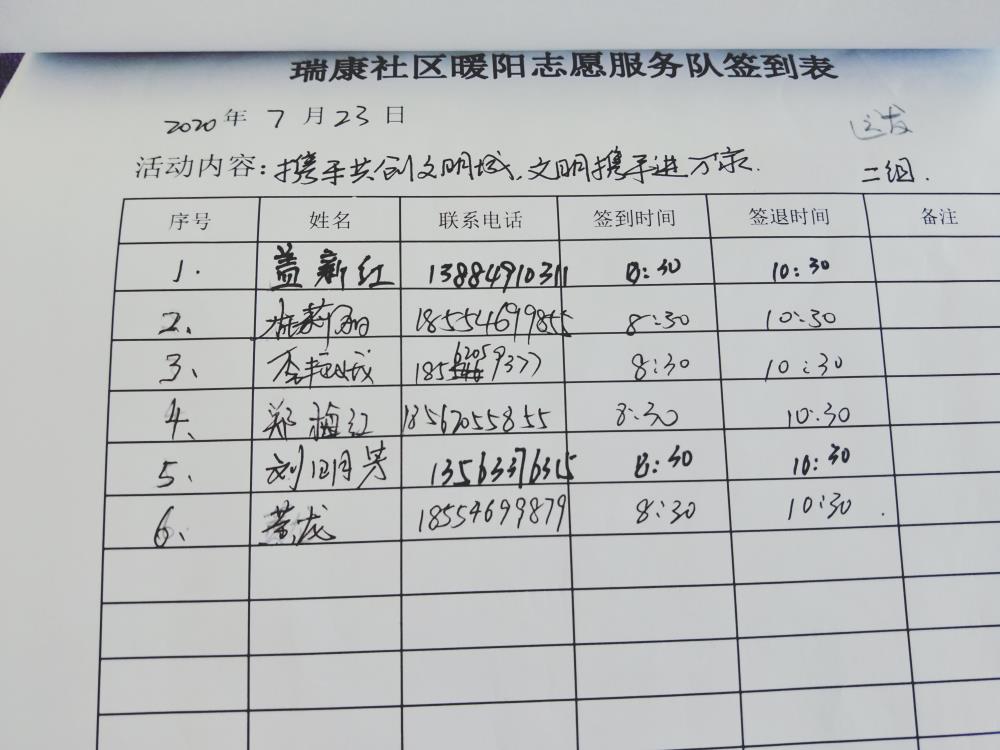 瑞康社区暖阳志愿服务队签到表
2020年 7 月 23 日
活动内容：携手共创文明城，文明携手进万家.
二组.
序号 姓名 联系电话 签到时间 签退时间 备注
1. 盖新红 13884910311 8:30 10:30
2、 18554699855 8:30 10:30
3、 8:30 10:30
4、 郑梅红 18562055855 8:30 10:30
5、 刘明芳 13563376315 8:30 10:30
6、 黄龙 18554699879 8:30 10:30.